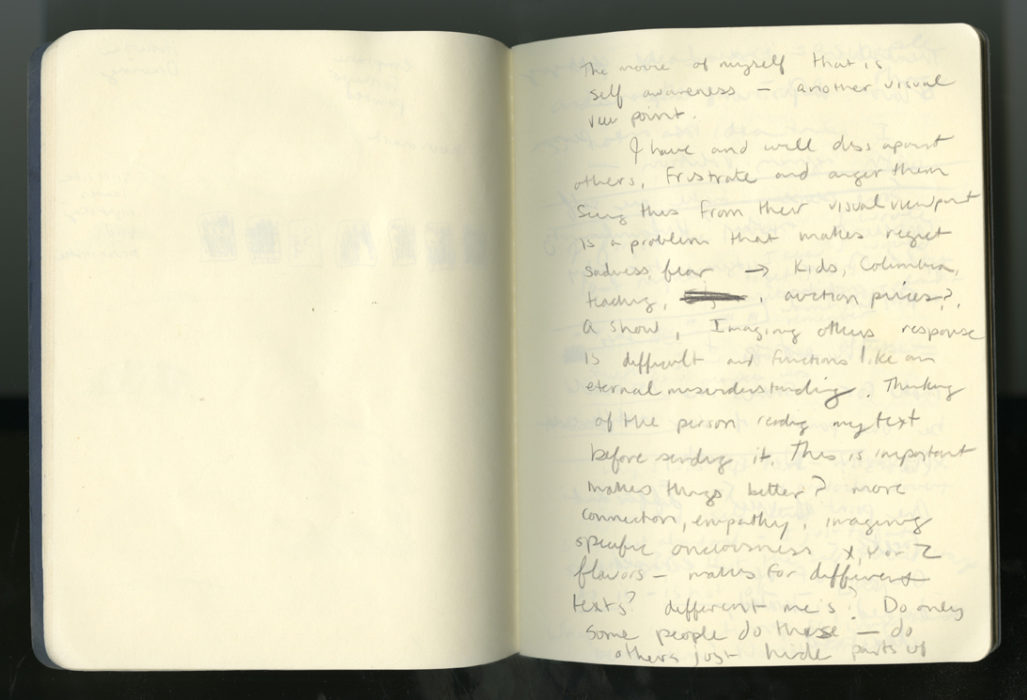 The movie of myself that is
self awareness – another visual
view point.
I have and will diss apoint
others, frustrate and anger them
Seing this from their visual viewpoint
is a problem that makes regret
sadness, fear → Kids, Columbia,
teaching, , auction prices?,
a show, Imaging others response
is difficult and functions like an
eternal misunderstanding. Thinking
of the person reading my text
before sending it. This is important
makes things better? more
connection, empathy, imaging
specific x, y or z
flavors – makes for different
texts? different me's? Do only
some people do this — do
others just hide parts of